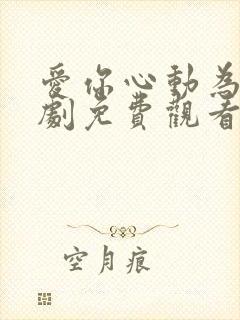 愛你心動為
劇免費觀看
空月痕